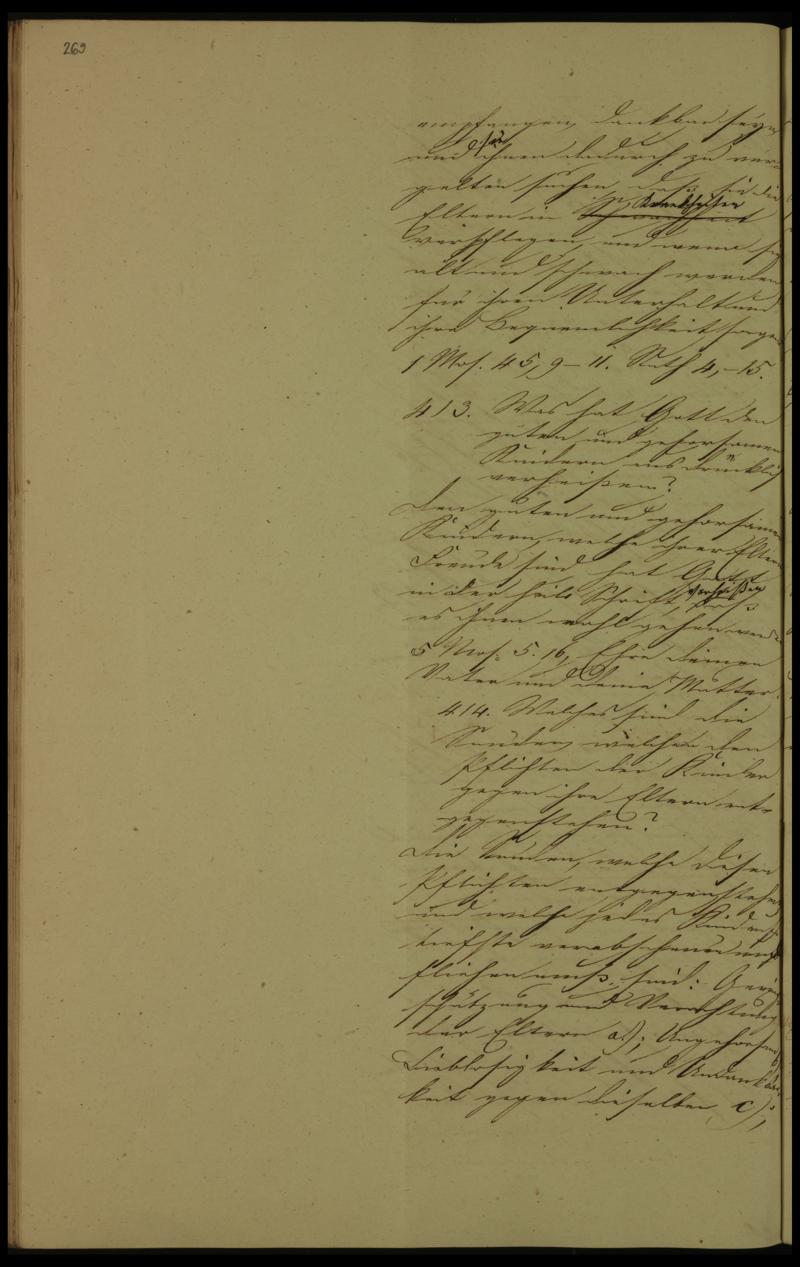 269
empfangen, dankbar seyn
und es ihnen dadurch zu ver-
gelten suchen, daß sie die
Eltern in Schwachheit Krankheiten
verpflegen, und wenn sie
alt und schwach werden
für ihren Unterhalt und
ihre Bequemlichkeit sorgen
1 Mos. 45, 9–11. Ruth 4, –15.
413. Was hat Gott den
guten und gehorsamen
Kindern ausdrücklich
verheißen?
Den guten und gehorsamen
Kindern, welche ihrer Eltern
Freude sind hat Gott
in der heil. Schrift verheißen, daß
es ihnen wohl gehen werde
5 Mos. 5. 16, Ehre deinen
Vater und deine Mutter.
414. Welches sind die
Sünden, welche den
Pflichten der Kinder
gegen ihre Eltern ent-
gegenstehen?
Die Sünden, welche diesen
Pflichten entgegenstehen
und welche jedes Kind aufs
tiefste verabscheuen und
fliehen muß, sind: Gering-
schätzung und Verachtung
der Eltern a); Ungehorsam b)
Lieblosigkeit und Undankbar-
keit gegen dieselben c);